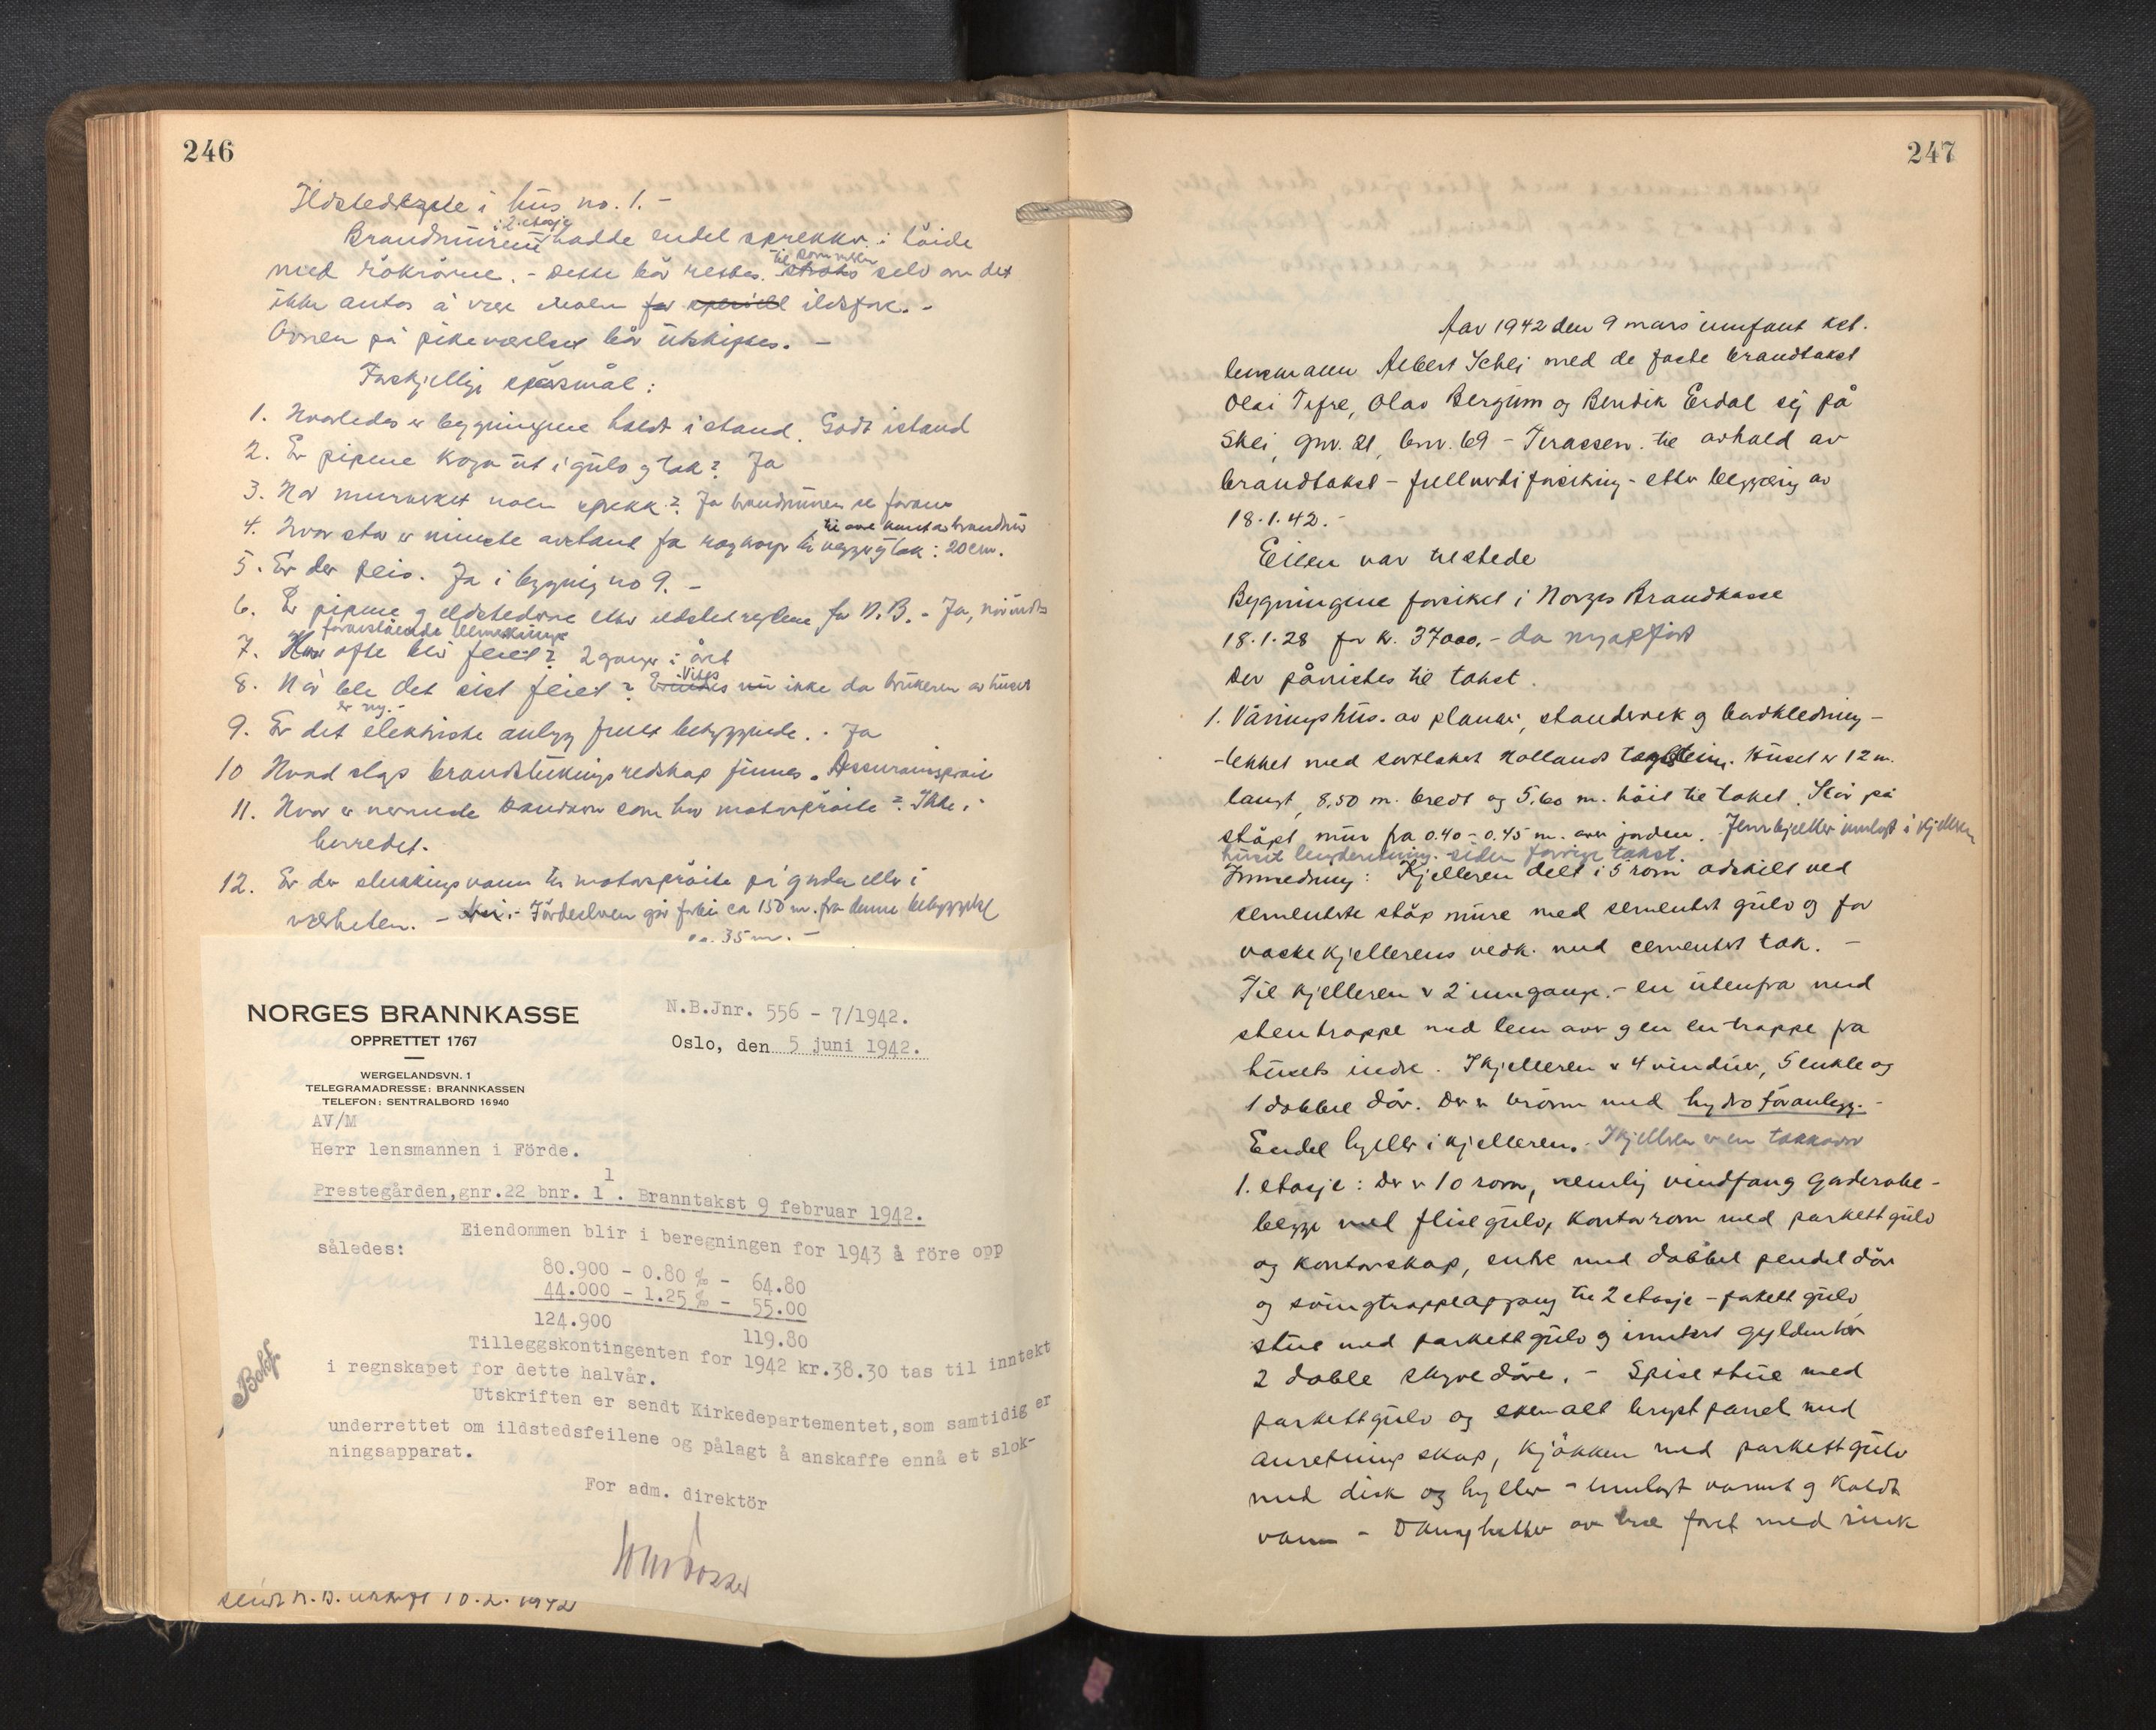 246
Ildstedskyte i hus no. 1. -
i 2. etasje
Brandmuren hadde endel sprekker i höide
med rökrörene. - Dette bör rettes til sommeren selv om det
ikke antas å være noen for ildsfare. -
Ovnen på pikeværelset bör utskiftes. -
Forskjellige spörsmål:
1. Hvorledes er bygningene holdt i stand. Godt istand
2. Er pipene kraga ut i gulv og tak? Ja
3. Har murverket noen sprekk? Ja brandmuren se foran
4. Hvor stor er minste avstand fra til vegger og tak: 20 cm.
5. Er der peis. Ja i bygning no 9. -
6. Er pipene og ildstedene etter ildstedreglene for N.B. - Ja, når
foranstående bemerkninger
7. Hvor ofte blir feiet? 2 ganger i året
8. Når ble det sist feiet? Vites ikke da brukeren av huset
er ny. -
9. Er det elektriske anlegg fullt betryggende. - Ja
10 Hvad slags brandslukningsredskap finnes.
11. Hvor er nermeste brandvern som har motorspröite? Ikke i
herredet.
12. Er der slukkingsvann for motorspröite på gården eller i
nærheten. - Nei. - Fördeelven går forbi ca 150 m. fra denne bebyggelse
ca. 35 m. -
NORGES BRANNKASSE
OPPRETTET 1767
WERGELANDSVN. 1
TELEGRAMADRESSE: BRANNKASSEN
TELEFON: SENTRALBORD 16940
N.B.Jnr. 556 - 7/1942.
Oslo, den 5 juni 1942.
AV/M
Herr lensmannen i Förde.
1
Prestegården,gnr.22 bnr. 1 . Branntakst 9 februar 1942.
Eiendommen blir i beregningen for 1943 å före opp
således:
80.900 - 0.80 ‰ - 64.80
44.000 - 1.25 ‰ - 55.00
124.900 119.80
Tilleggskontingenten for 1942 kr.38.30 tas til inntekt
i regnskapet for dette halvår.
Utskriften er sendt Kirkedepartementet,som samtidig er
underrettet om ildstedsfeilene og pålagt å anskaffe ennå et slok-
ningsapparat.
For adm. direktör
Bokf.
Sendt N.B. utskrift 10.2.1942
247
Aar 1942 den 9 mars innfant kst.
lensmann Albert Schei med de faste brandtakst
Olai Tefre, Olav Bergum og Bendik Erdal sig på
Skei, gnr. 21, bnr. 69 - Terassen. til avhold av
brandtakst - fullverdiforsikring - etter begjæring av
18.1.42. -
Eieren var tilstede
Bygningene forsikret i Norges Brandkasse
18.1.28 for kr. 37000.- da nyopfört
Der påvistes til takst.
1. Våningshus. av planker, standerverk og bordkledning -
-tekket med sortlakert Hollandsk taksten. Huset er 12 m.
langt, 8,50 m. bredt og 5.60 m. höit til taket. Står på
stöpt mur fra 0.40 - 0.45 m. over jorden. Jernbjelker innlagt i kjelleren
huset lengderetning. - siden forrige takst.
Innredning: Kjelleren delt i 5 rom adskilt ved
sementerte stöp mure med sementert gulv og for
vaskekjellerens vedk. med cementert tak. -
Til kjelleren er 2 innganger. - en utenfra med
stentrappe med lem over og en trappe fra
husets indre. I kjelleren er 4 vinduer, 5 enkle og
1 dobbel dör. Der er brönn med hydroforanlegg. -
Endel hyller i kjelleren. - I kjelleren er en
1. etasje: Der er 10 rom, nemlig vindfang Garderobe -
begge med flisegulv, kontorrom med parkettgulv
og kontorskap, entre med dobbel pendeldör
og svingtrappeopgang til 2 etasje - parkettgulv
stue med parkettgulv og
2 doble skyvedöre. - Spisestue med
parkettgulv og brystpanel med
anretningsskap, kjökken med parkettgulv
med disk og hyller - innlagt varmt og koldt
vann - Damphetter av tre foret med sink